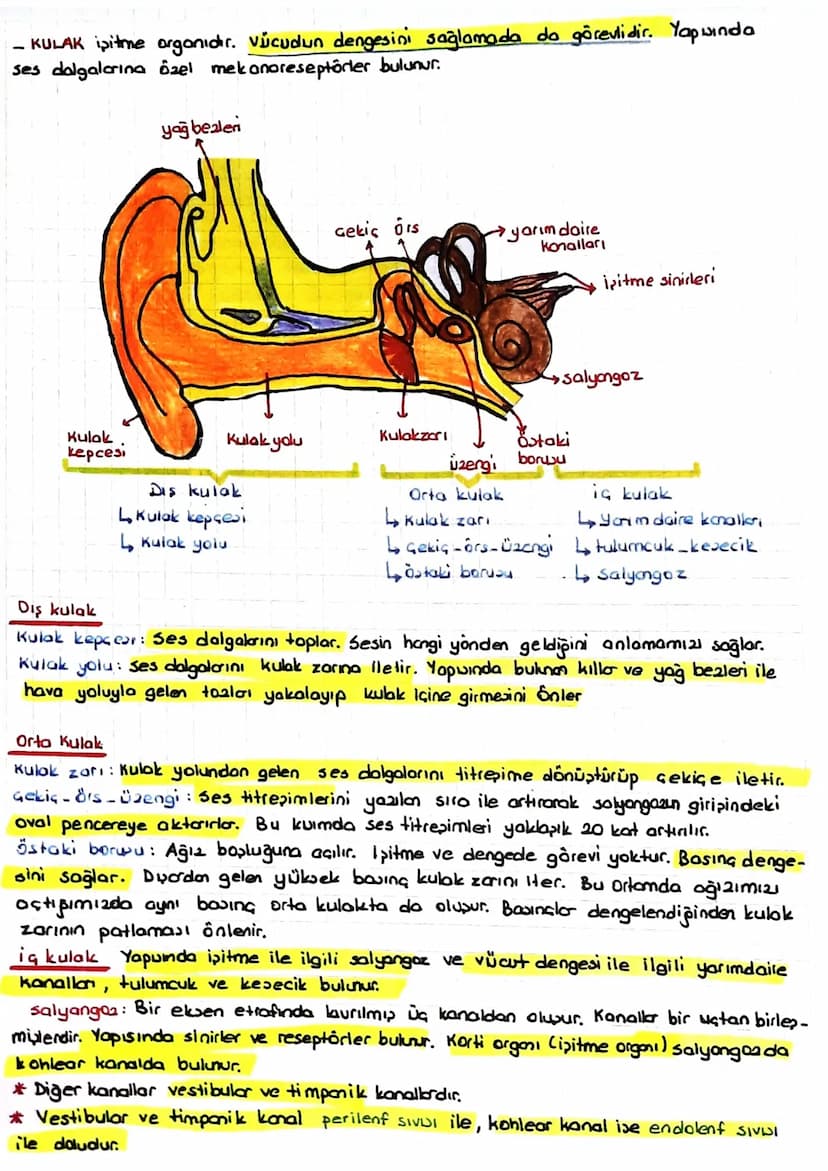 - KULAK işitme organıdır. Vücudun dengesini sağlamada da görevlidir. Yapısında
ses dalgalarına özel mekanoreseptörler bulunur.
yağ bezleri
Çekiç Örs
yarım daire
kanalları
işitme sinirleri
salyangoz
Kulak
kepçesi
Kulak yolu
Kulakzarı
üzengi
Östaki
borusu
Dış kulak
↳ Kulak kepçesi
↳ Kulak yolu
Orta kulak
↳ Kulak zarı
↳ Çekiç-örs-üzengi
↳ östaki borusu
iç kulak
↳ Yarım daire kanalları
↳ tulumcuk_kesecik
↳ Salyangoz
Dış kulak
Kulak kepçesi: Ses dalgalarını toplar. Sesin hangi yönden geldiğini anlamamızı sağlar.
Kulak yolu: Ses dalgalarını kulak zarına iletir. Yapısında bulunan kıllar ve yağ bezleri ile
hava yoluyla gelen tozları yakalayıp kulak içine girmesini önler
Orta Kulak
Kulak zarı: Kulak yolundan gelen ses dalgalarını titreşime dönüştürüp çekiçe iletir.
Çekiç-Örs-Üzengi: Ses titreşimlerini yazılan sıra ile artırarak salyangozun girişindeki
oval pencereye aktarırlar. Bu kısımda ses titreşimleri yaklaşık 20 kat artırılır.
Östaki borusu: Ağız boşluğuna açılır. İşitme ve dengede görevi yoktur. Basınç denge-
sini sağlar. Dışardan gelen yüksek basınç kulak zarını iter. Bu ortamda ağzımızı
açtığımızda aynı basınç orta kulakta da oluşur. Basınçlar dengelendiğinden kulak
zarının patlaması önlenir.
iç kulak Yapısında işitme ile ilgili salyangoz ve vücut dengesi ile ilgili yarımdaire
kanalları, tulumcuk ve kesecik bulunur.
salyangoz: Bir eksen etrafında kıvrılmış üç kanaldan oluşur. Kanallar bir uçtan birleş-
mişlerdir. Yapısında sinirler ve reseptörler bulunur. Korti organı (işitme organı) salyangozda
kohlear kanalda bulunur.
* Diğer kanallar vestibular ve timpanik kanallardır.
* Vestibular ve timpanik kanal perilenf sıvısı ile, kohlear kanal ise endolenf sıvısı
ile doludur.